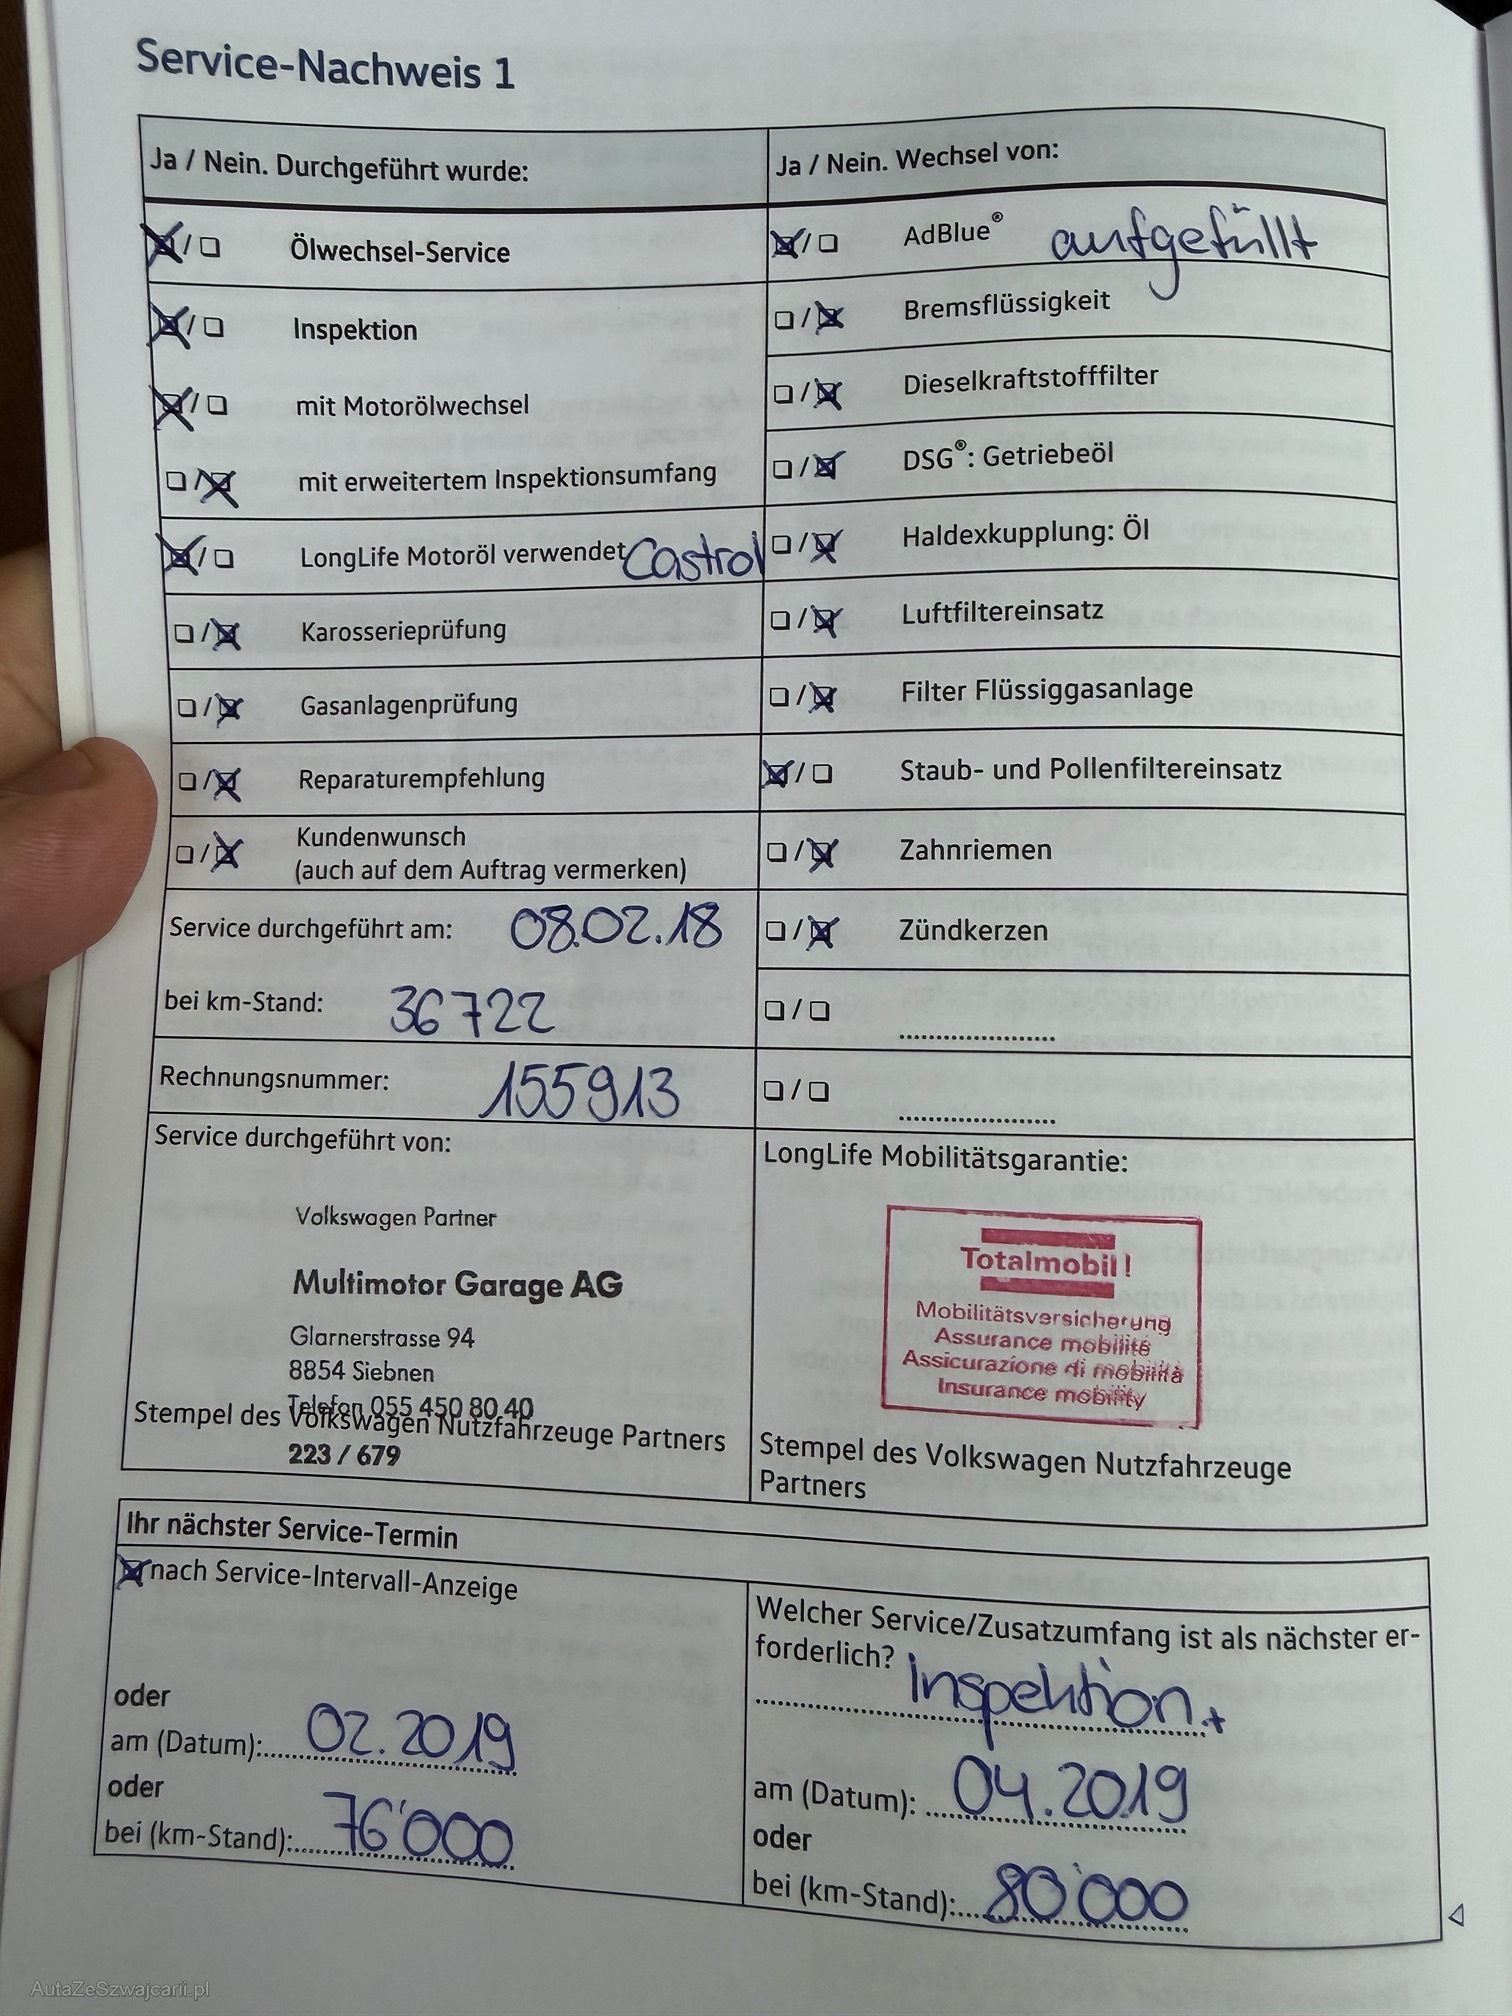 Service-Nachweis 1
Ja / Nein. Durchgeführt wurde:
☒ / ☐ Ölwechsel-Service
☒ / ☐ Inspektion
☒ / ☐ mit Motorölwechsel
☐ / ☒ mit erweitertem Inspektionsumfang
☒ / ☐ LongLife Motoröl verwendet Castrol
☐ / ☒ Karosserieprüfung
☐ / ☒ Gasanlagenprüfung
☐ / ☒ Reparaturempfehlung
☐ / ☒ Kundenwunsch
(auch auf dem Auftrag vermerken)
Service durchgeführt am: 08.02.18
bei km-Stand: 36722
Rechnungsnummer: 155913
Service durchgeführt von:
Volkswagen Partner
Multimotor Garage AG
Glarnerstrasse 94
8854 Siebnen
Telefon 055 450 80 40
Stempel des Volkswagen Nutzfahrzeuge Partners
223 / 679
Ja / Nein. Wechsel von:
☒ / ☐ AdBlue® aufgefüllt
☐ / ☒ Bremsflüssigkeit
☐ / ☒ Dieselkraftstofffilter
☐ / ☒ DSG®: Getriebeöl
☐ / ☒ Haldexkupplung: Öl
☐ / ☒ Luftfiltereinsatz
☐ / ☒ Filter Flüssiggasanlage
☒ / ☐ Staub- und Pollenfiltereinsatz
☐ / ☒ Zahnriemen
☐ / ☒ Zündkerzen
☐ / ☐ ....................
☐ / ☐ ....................
LongLife Mobilitätsgarantie:
Totalmobil!
Mobilitätsversicherung
Assurance mobilité
Assicurazione di mobilità
Insurance mobility
Stempel des Volkswagen Nutzfahrzeuge
Partners
Ihr nächster Service-Termin
☒ nach Service-Intervall-Anzeige
oder
am (Datum): 02.2019
oder
bei (km-Stand): 76'000
Welcher Service/Zusatzumfang ist als nächster er-
forderlich?
Inspektion +
am (Datum): 04.2019
oder
bei (km-Stand): 80'000
AutaZeSzwajcarii.pl